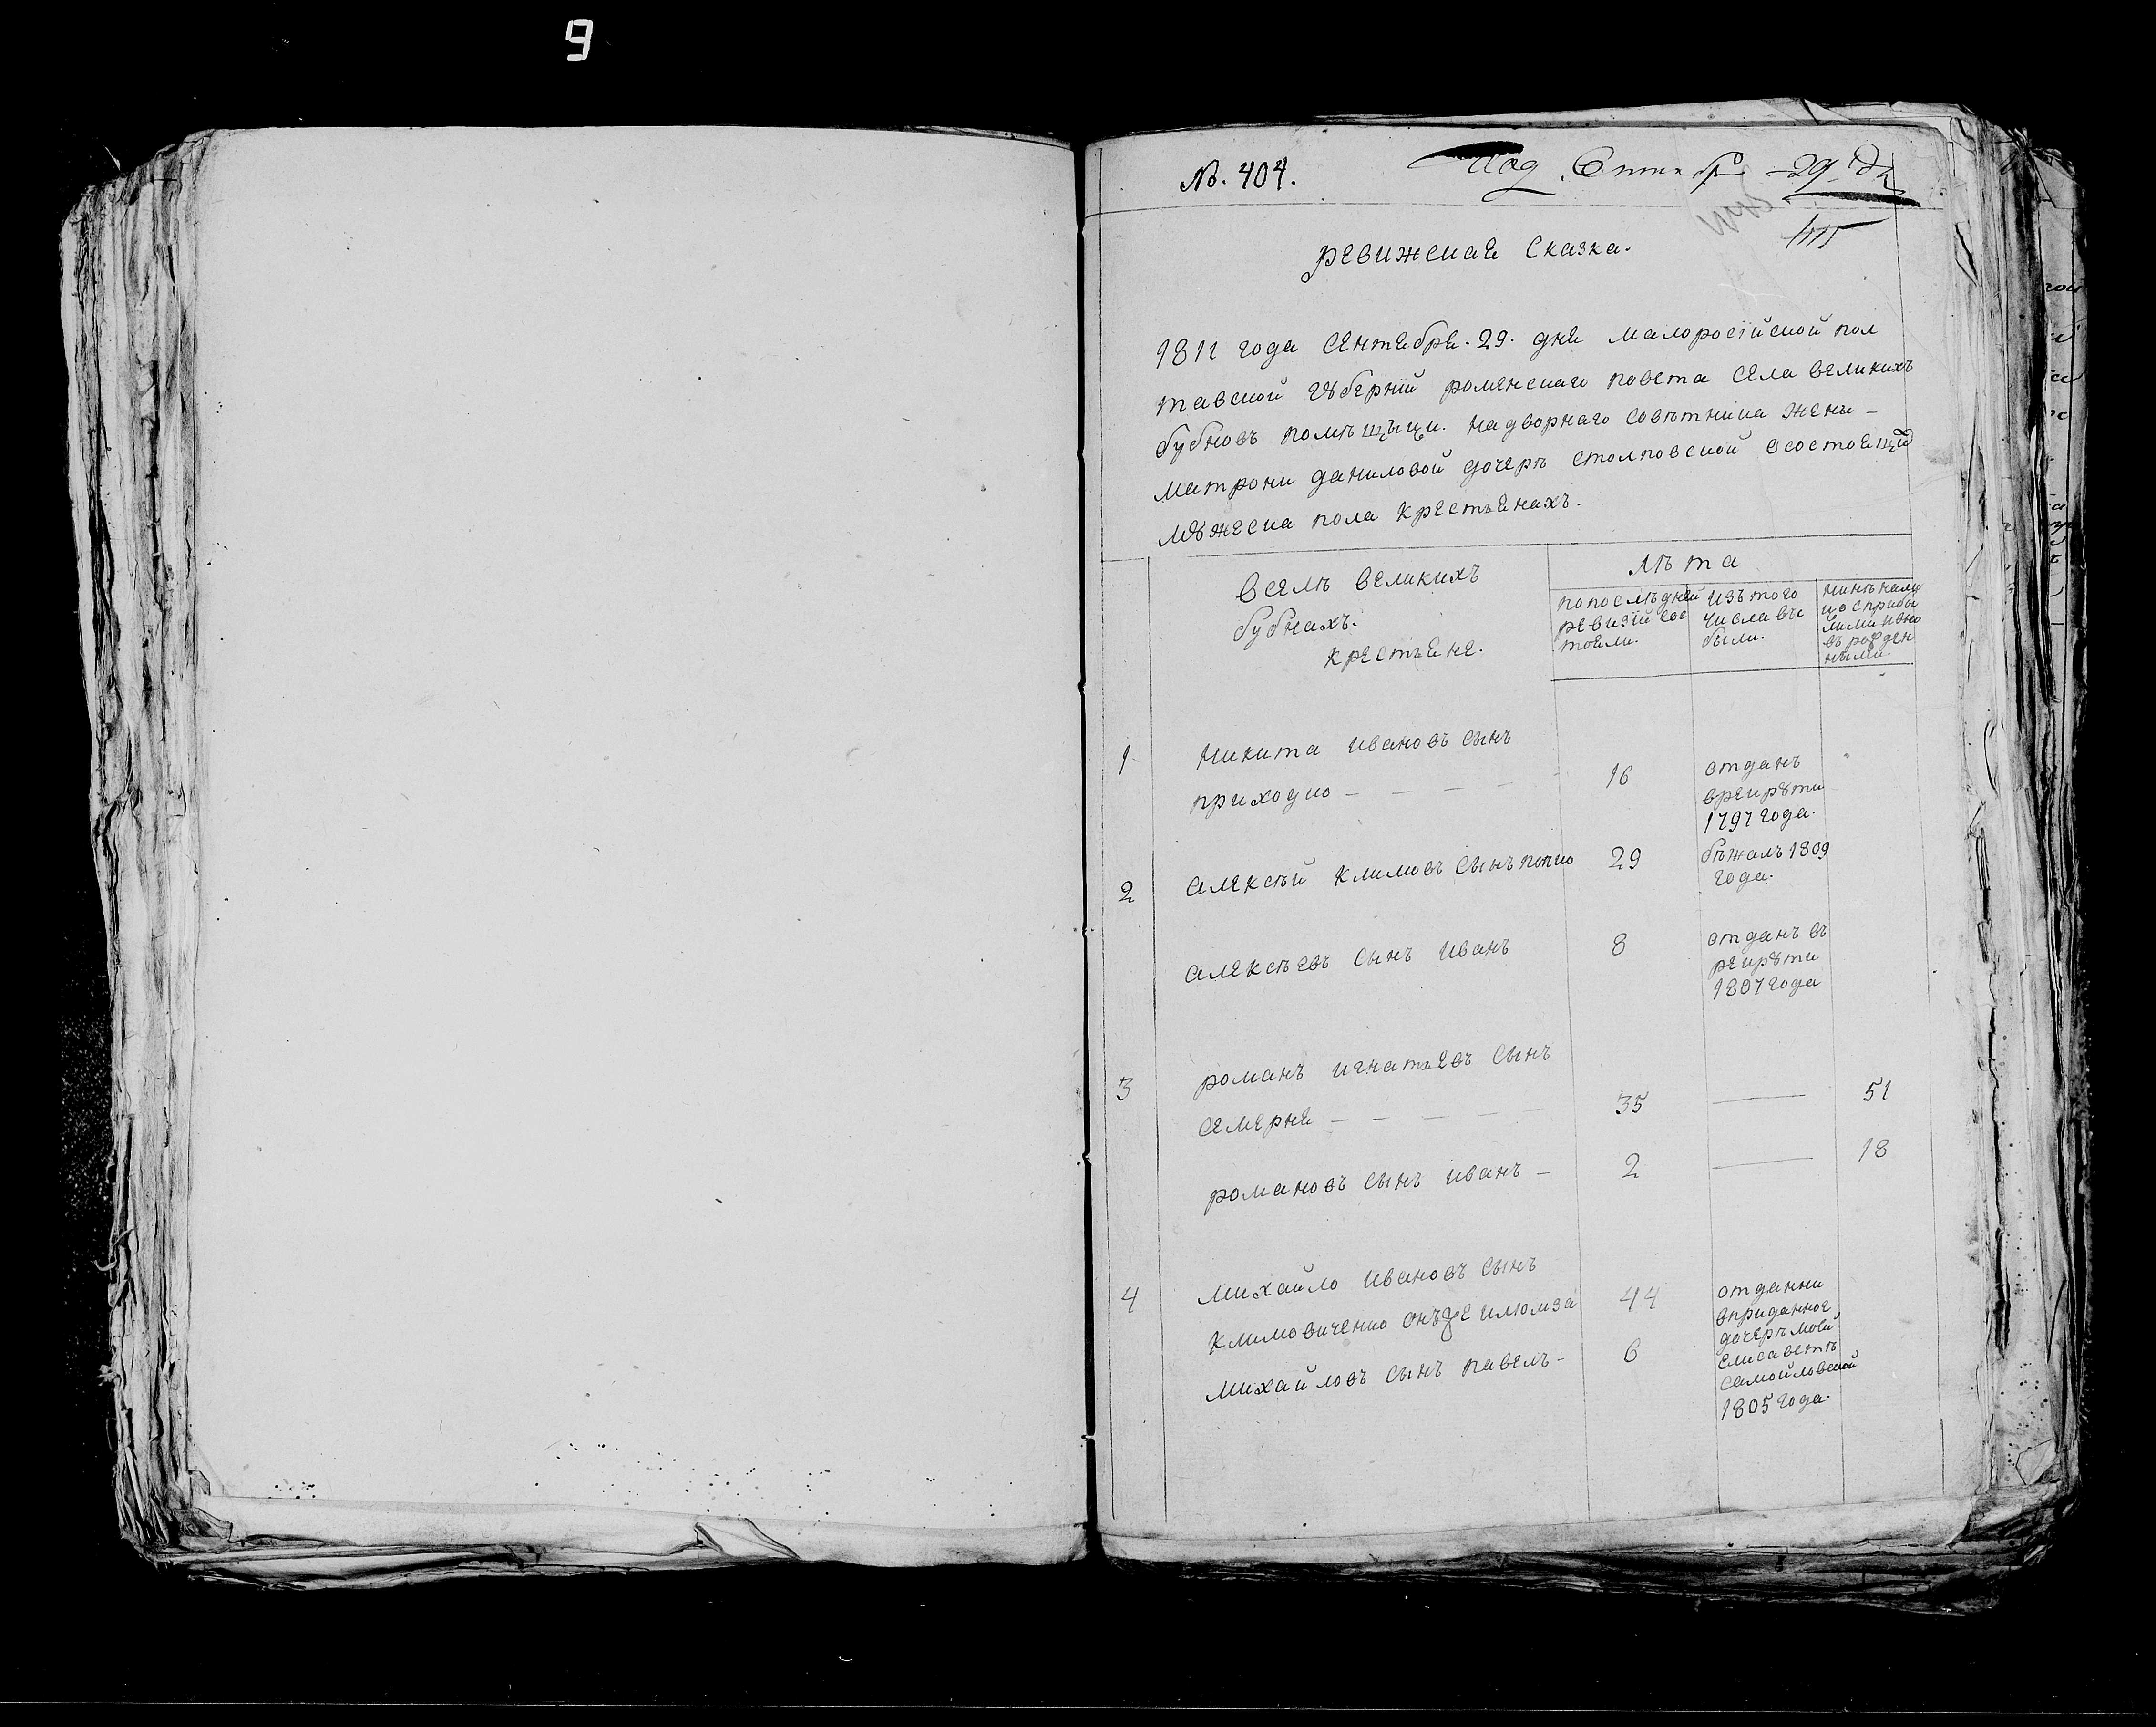 9
№. 404.
Под. Сентебр 29 д
ревижская сказка.
1811 года сентебрѧ. 29. днѧ малоросійской пол
тавской гꙋберній роменскаго повета села великихъ
бубновъ помѣщицы. надворнаго совѣтника жены –
матрони даниловой дочерѣ столповской осостоѧщих
мꙋжеска пола крестьѧнахъ.
лѣта
всѧлѣ великихъ
бубнахъ.
крестьѧне.
попослѣдней
ревизій сос
тоѧли.
изъ того
числа вы
были.
нинѣ нали
цо сприбы
лими ивно
въ рожден
ными.
1 никита ивановъ сынъ
приходко – – – – – 16
отданъ
врекрꙋти
1797 года.
2 алексѣй климовъ сынъ попко 29
бѣжалъ 1809
года.
алексѣевъ сынъ иванъ 8
отданъ въ
рекрꙋти
1807 года
3 романъ игнатьевъ сынъ
семернѧ – – – – – 35 — 51
романовъ сынъ иванъ – 2 — 18
4 михайло ивановъ сынъ
климовиченко онъже илюмза 44
михайловъ сынъ павелъ – 6
отданни
вприданное
дочерѣ моей
елисаветѣ
самойловской
1805 года.